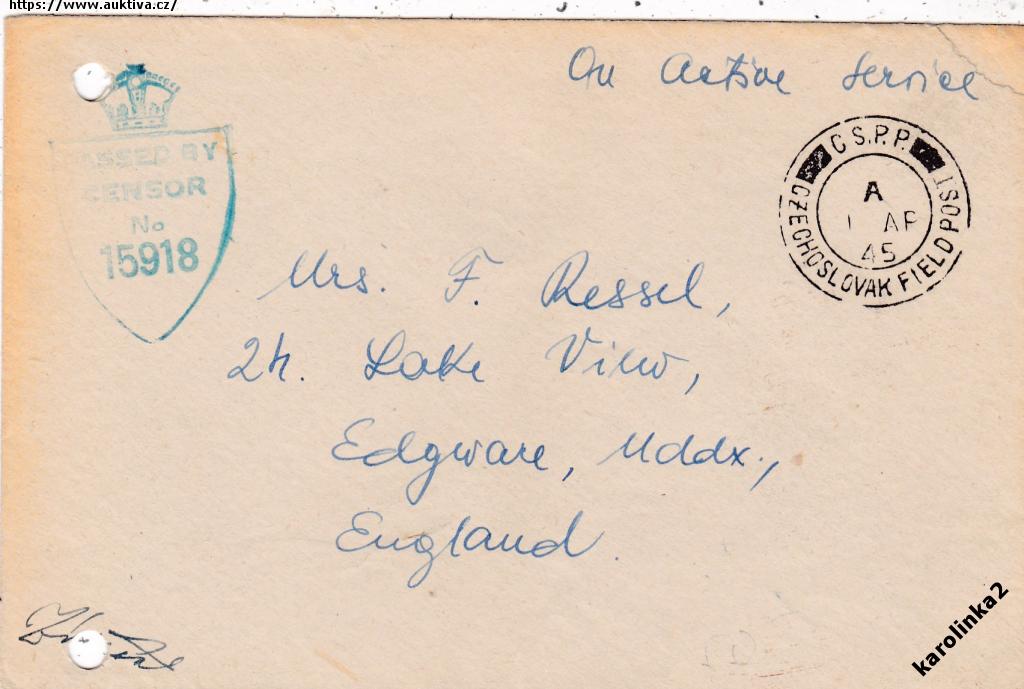 https://www.auktiva.cz/
On Active Service
PASSED BY
CENSOR
No
15918
C S.P.P.
A
1 AP
45
CZECHOSLOVAK FIELD POST
Mrs. F. Ressel,
24. Lake View,
Edgware, Mddx.,
England.
karolinka2